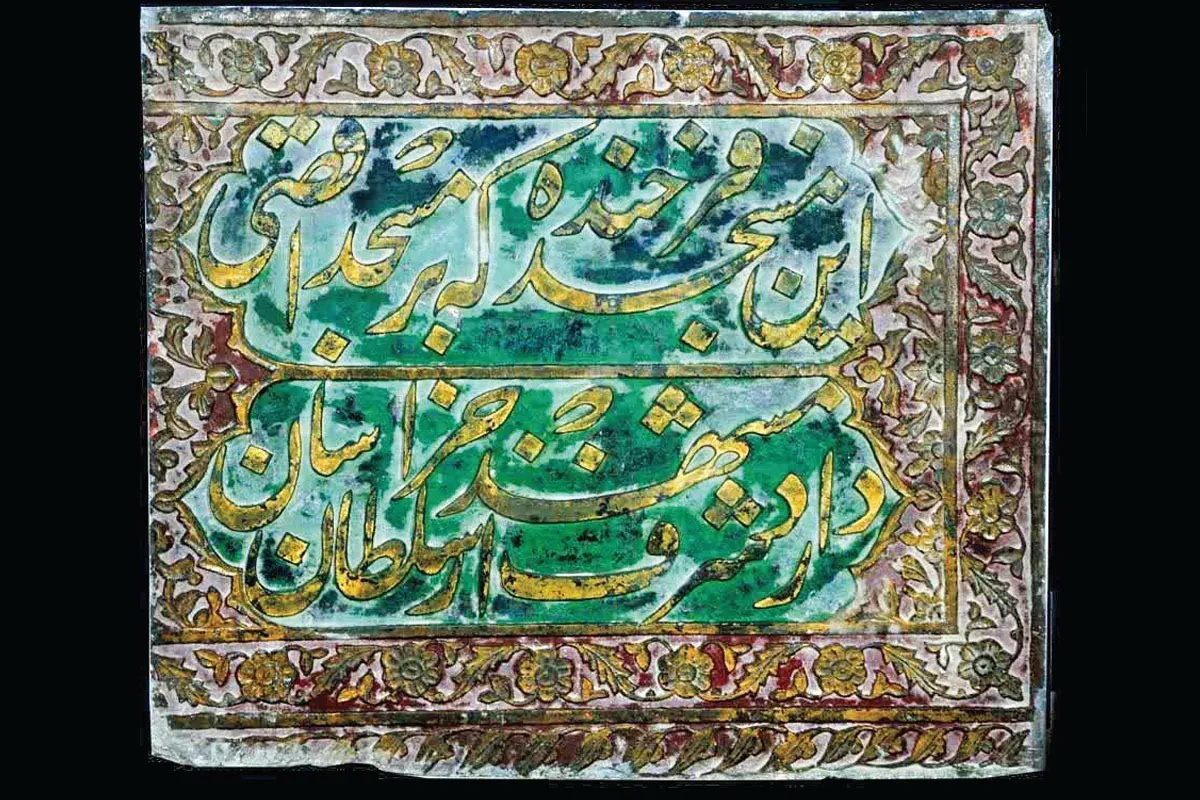 این مسجد فرخنده که بر مسجد اقصی
دارد شرف از مشهد سلطان خراسان